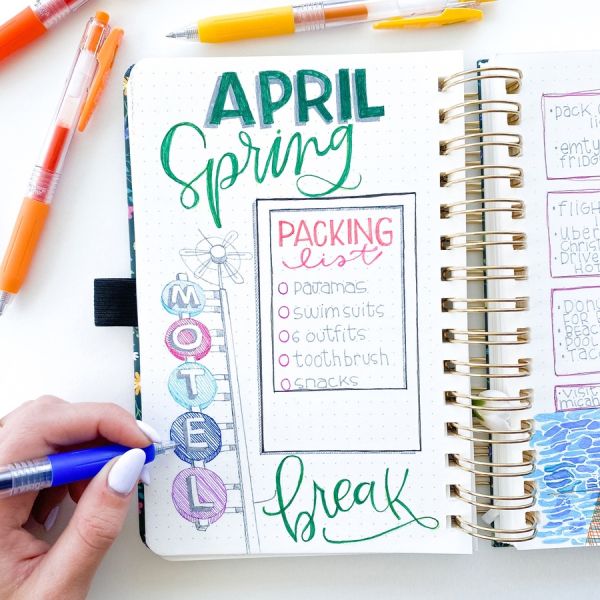 APRIL
Spring
PACKING
list
pajamas
swimsuits
6 outfits
toothbrush
snacks
MOTEL
break
•pack
•emty
fridg
•fligh
•uber
christ
Drive
Donu
for
beach
pool
taco
•visit
micah